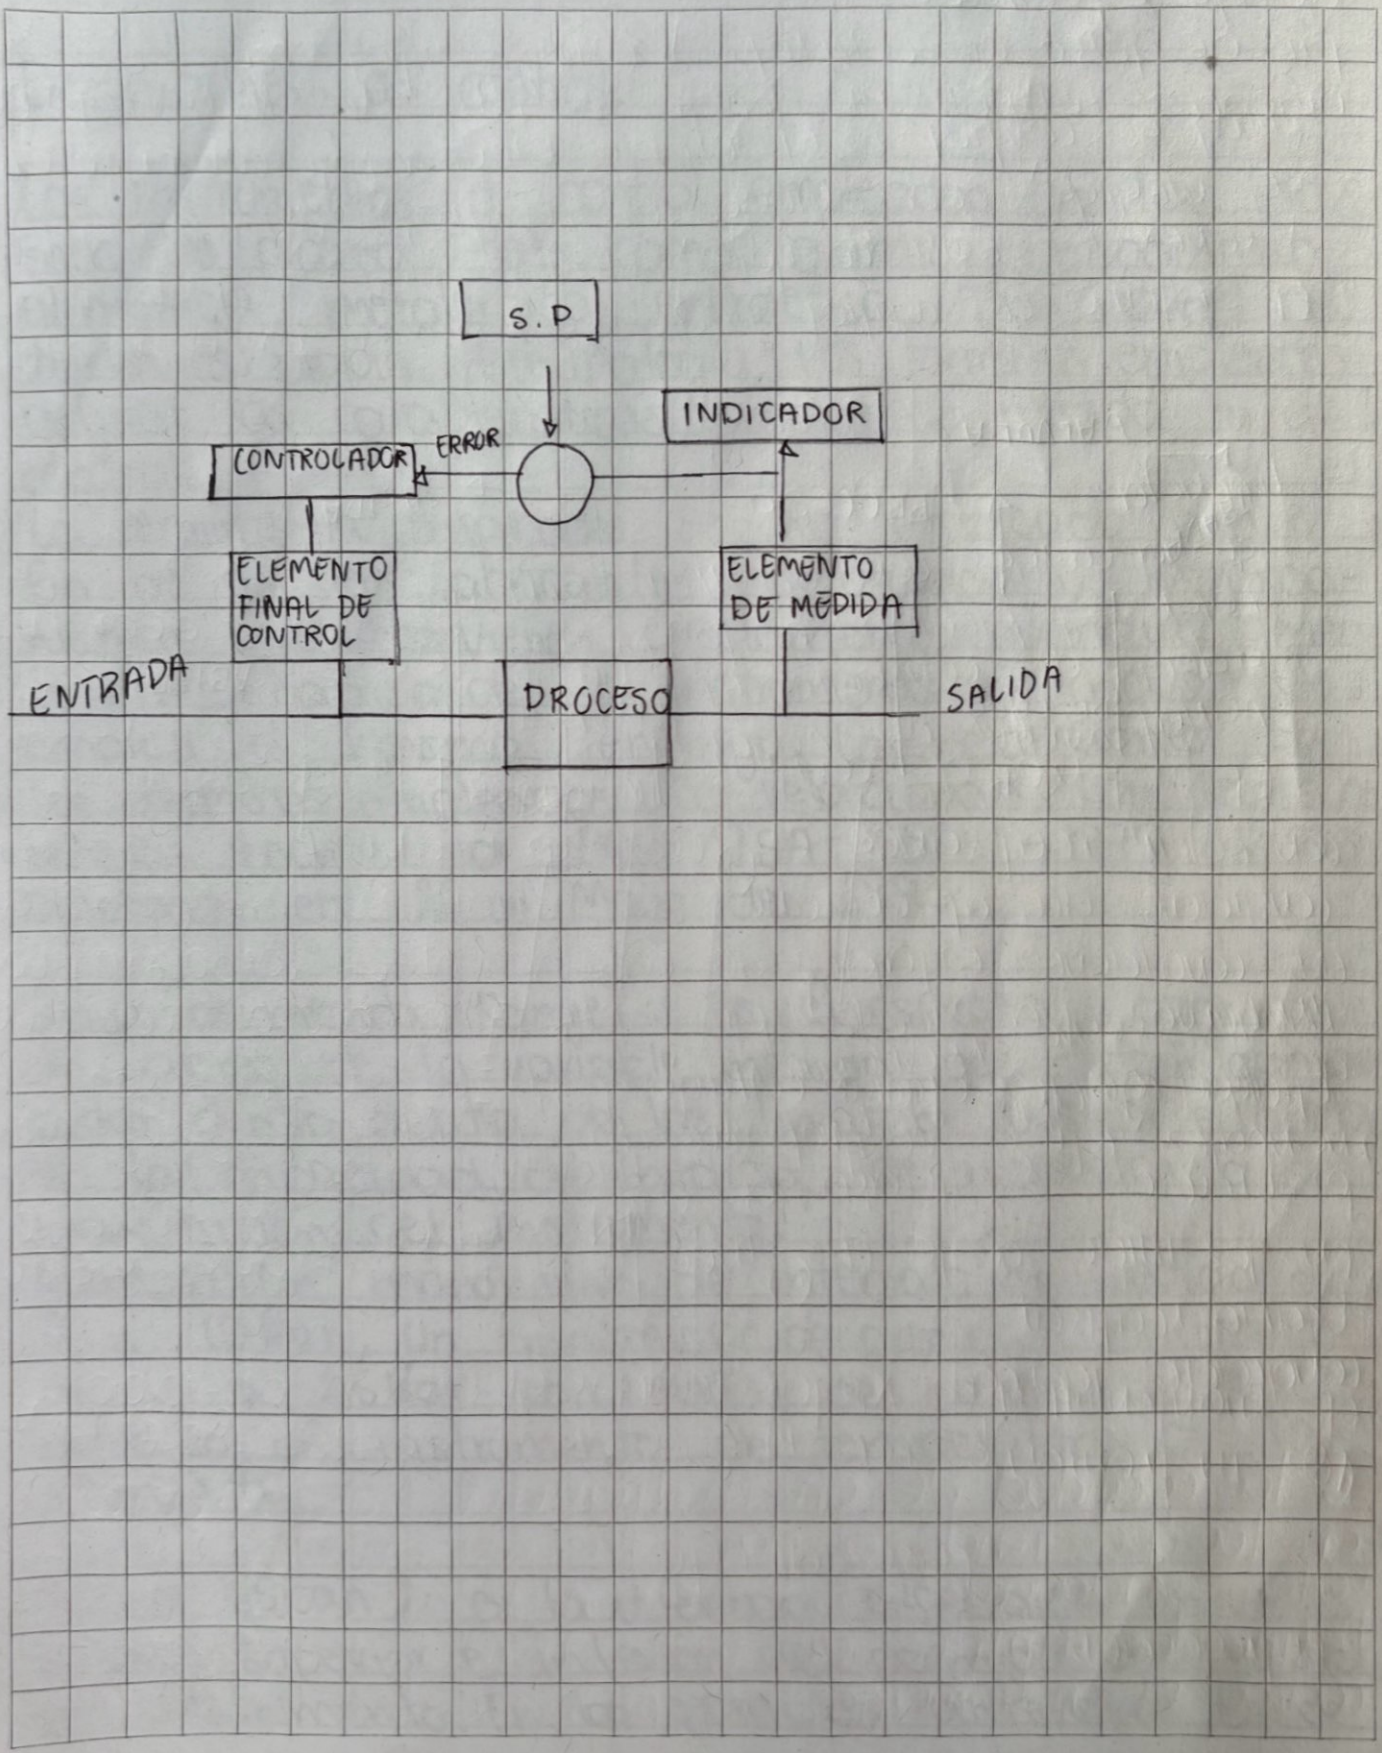 S.P
INDICADOR
ERROR
CONTROLADOR
ELEMENTO
FINAL DE
CONTROL
ELEMENTO
DE MEDIDA
ENTRADA
PROCESO
SALIDA